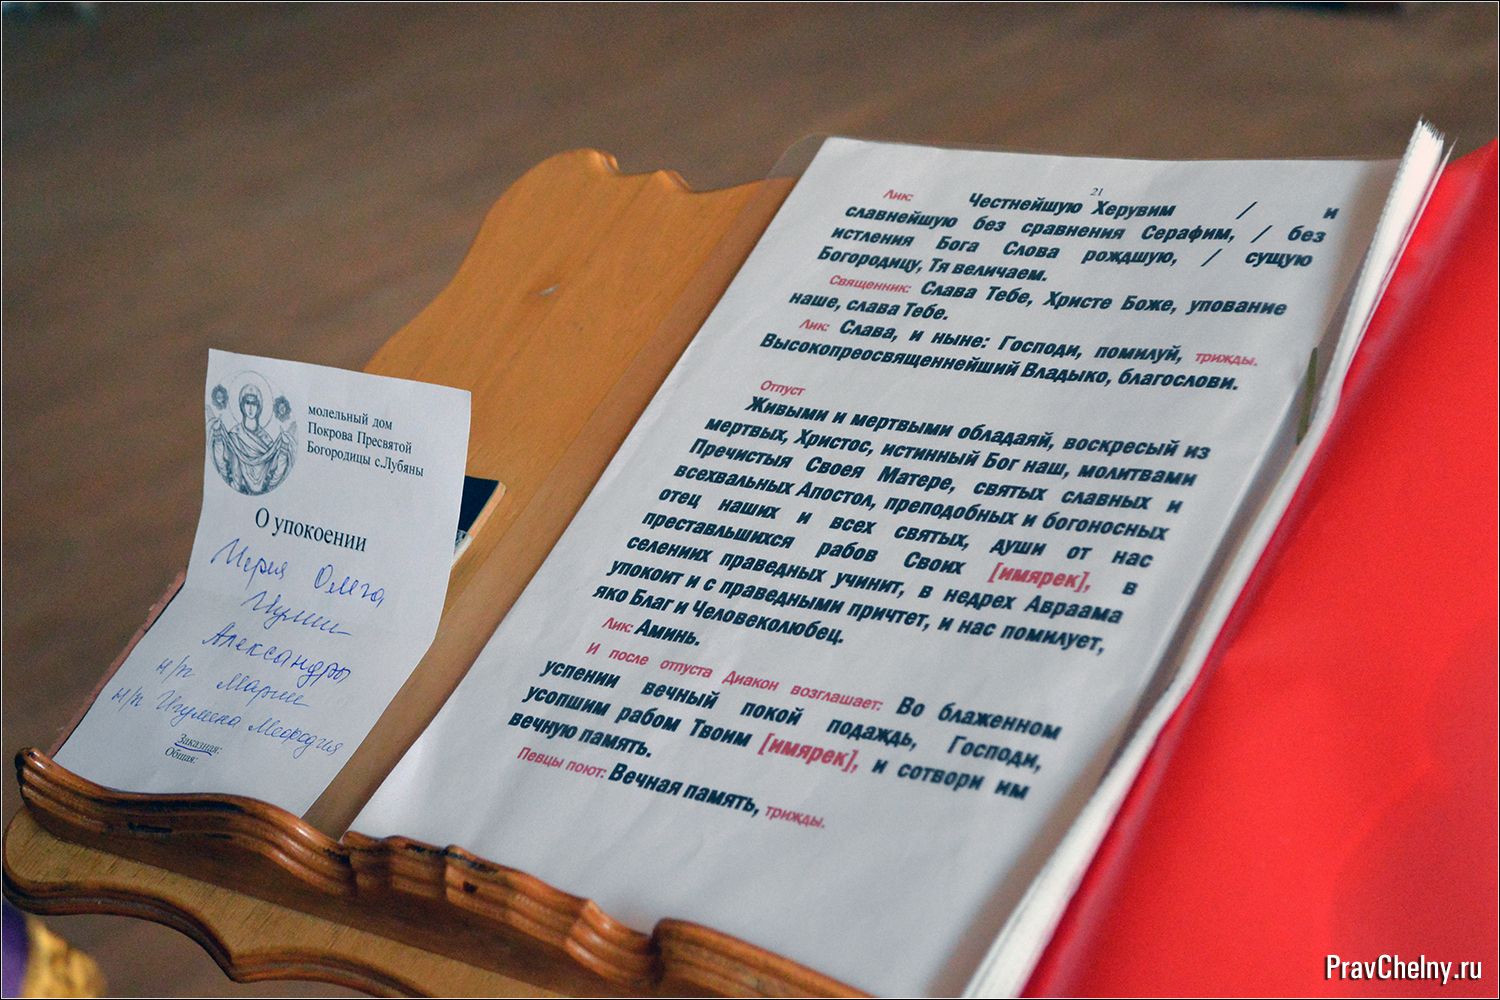 молельный дом
Покрова Пресвятой
Богородицы с.Лубяны
О упокоении
Иерея Олега
Иулии
Александры
н/п Марии
н/п Игумена Мефодия
Заказная:
Общая:
21
Лик: Честнейшую Херувим / и
славнейшую без сравнения Серафим, / без
истления Бога Слова рождшую, / сущую
Богородицу, Тя величаем.
Священник: Слава Тебе, Христе Боже, упование
наше, слава Тебе.
Лик: Слава, и ныне: Господи, помилуй, трижды.
Высокопреосвященнейший Владыко, благослови.
Отпуст
Живыми и мертвыми обладаяй, воскресый из
мертвых, Христос, истинный Бог наш, молитвами
Пречистыя Своея Матере, святых славных и
всехвальных Апостол, преподобных и богоносных
отец наших и всех святых, души от нас
преставльшихся рабов Своих [имярек], в
селениих праведных учинит, в недрех Авраама
упокоит и с праведными причтет, и нас помилует,
яко Благ и Человеколюбец.
Лик: Аминь.
И после отпуста Диакон возглашает: Во блаженном
успении вечный покой подаждь, Господи,
усопшим рабом Твоим [имярек], и сотвори им
вечную память.
Певцы поют: Вечная память, трижды.
PravChelny.ru